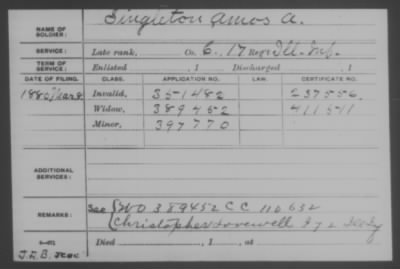 NAME OF SOLDIER: Singleton Amos A.
SERVICE: Late rank, Co. C, 17 Reg't Ill. Inf.
TERM OF SERVICE: Enlisted , 1 Discharged , 1
DATE OF FILING. CLASS. APPLICATION NO. LAW. CERTIFICATE NO.
1880 Mar 8 Invalid, 351482 237556
Widow, 389452 411541
Minor, 397770
ADDITIONAL SERVICES:
REMARKS: See WO 389452 CC 110632
Christopher
Died , 1 , at
J.E.B.